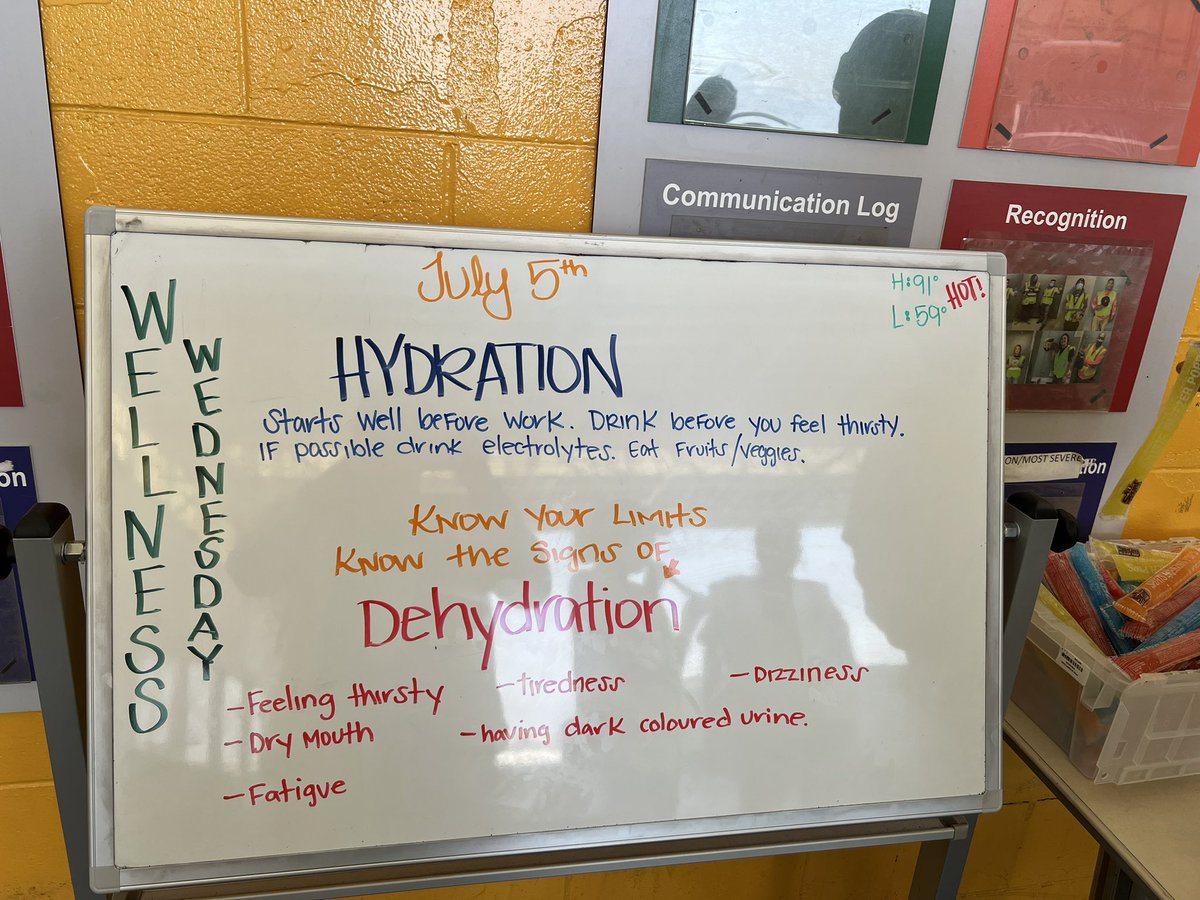 Communication Log
Recognition
July 5th
H:91°
L:59°
HOT!
WELLNESS
WEDNESDAY
HYDRATION
Starts well before work. Drink before you feel thirsty.
IF possible drink electrolytes. Eat Fruits/Veggies.
Know Your Limits
Know the Signs OF
Dehydration
-Feeling thirsty
-tiredness
-Dizziness
-Dry Mouth
-having dark coloured urine.
-Fatigue
ON/MOST SEVERE
on